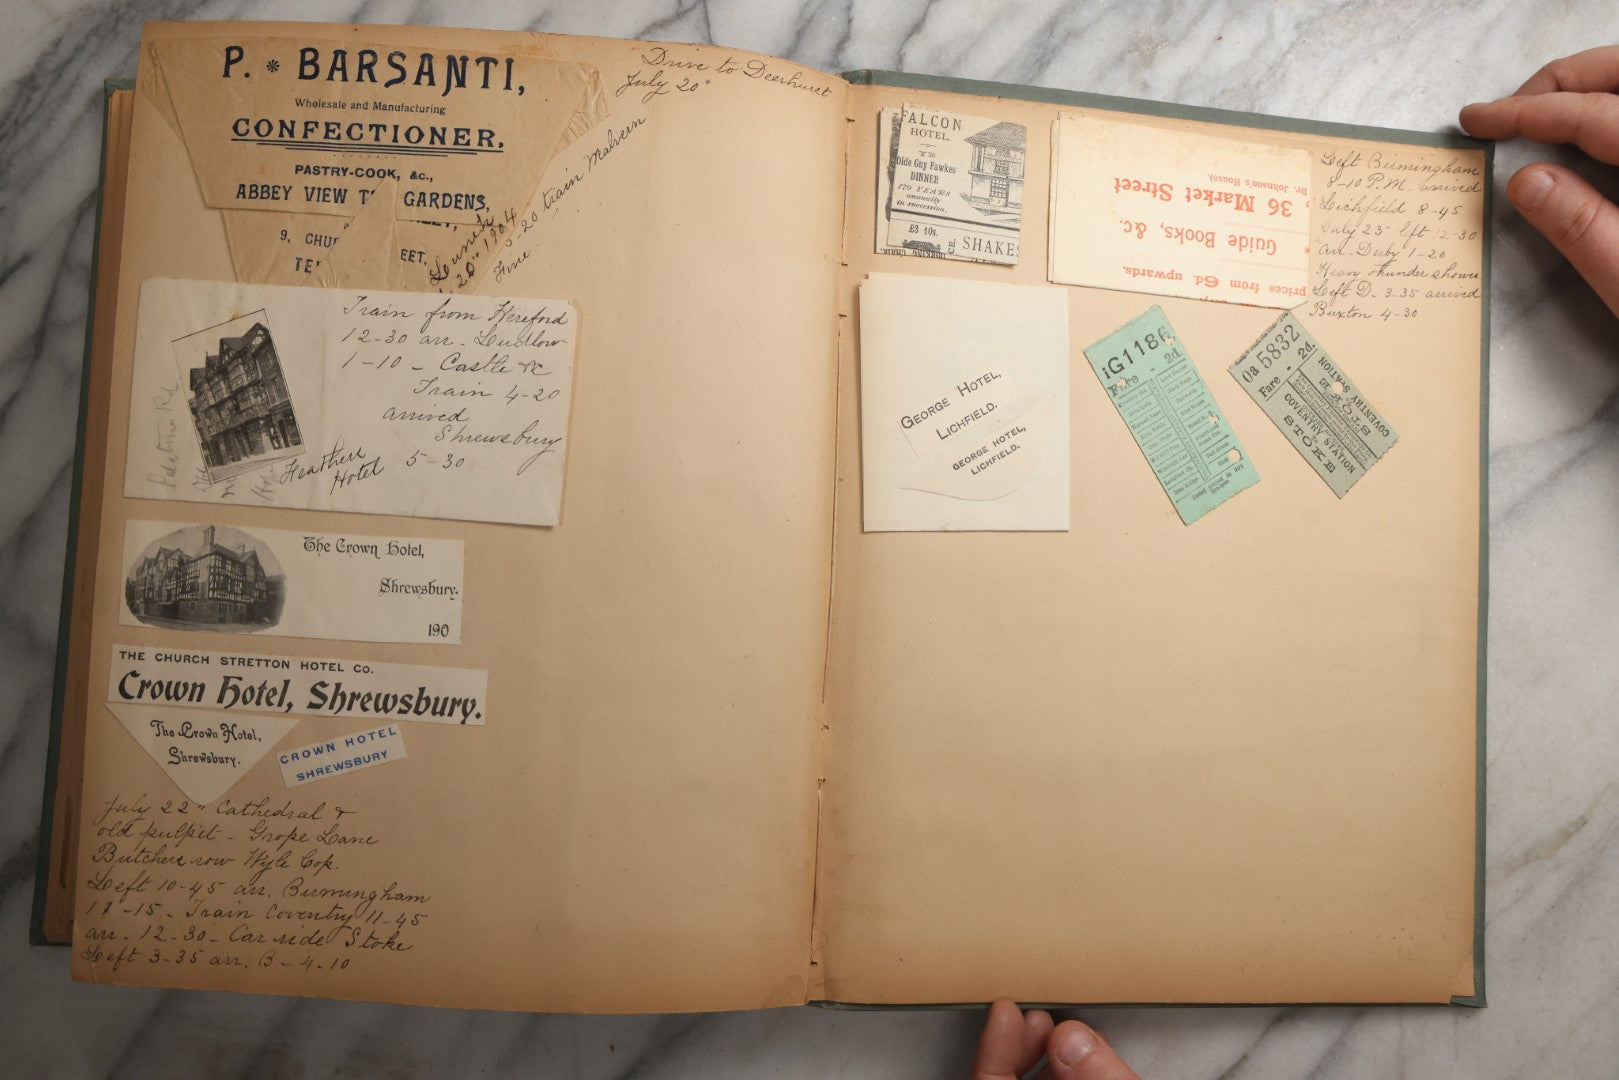 P. * BARSANTI,
Wholesale and Manufacturing
CONFECTIONER,
PASTRY-COOK, &c.,
ABBEY VIEW T GARDENS,
9, CHU EET,
TE
Lunch
20" 1904
Fine 5-20 train Malvern
Drive to Deerhurst
July 20"
Train from Hereford
12-30 arr- Ludlow
1-10 - Castle &c
Train 4-20
arrived
Shrewsbury
5-30
Feathers
Hotel
The Crown Hotel,
Shrewsbury.
190
THE CHURCH STRETTON HOTEL Co.
Crown Hotel, Shrewsbury.
The Crown Hotel,
Shrewsbury.
CROWN HOTEL
SHREWSBURY
July 22" Cathedral &
old pulpit - Grope Lane
Butcher row Wyle Cop.
Left 10-45 arr. Birmingham
11-15 - Train Coventry 11-45
arr- 12-30- Car ride Stoke
Left 3-35 arr. B- 4-10
FALCON
HOTEL.
YE
Olde Guy Fawkes
DINNER
179 YEARS
annually
in succession.
£3 10s.
SHAKES
36 Market Street
Dr. Johnson's House).
Guide Books, &c.
prices from 6d. upwards.
Left Birmingham
8-10 P.M. arrived
Lichfield 8-45
July 23 lft 12-30
arr- Derby 1-20
Heavy thunder shower
Left D- 3-35 arrived
Buxton 4-30
GEORGE HOTEL,
LICHFIELD.
GEORGE HOTEL,
LICHFIELD.
iG1186
2d.
Fare
0a5832
Fare - 2d.
COVENTRY STATION
STOKE